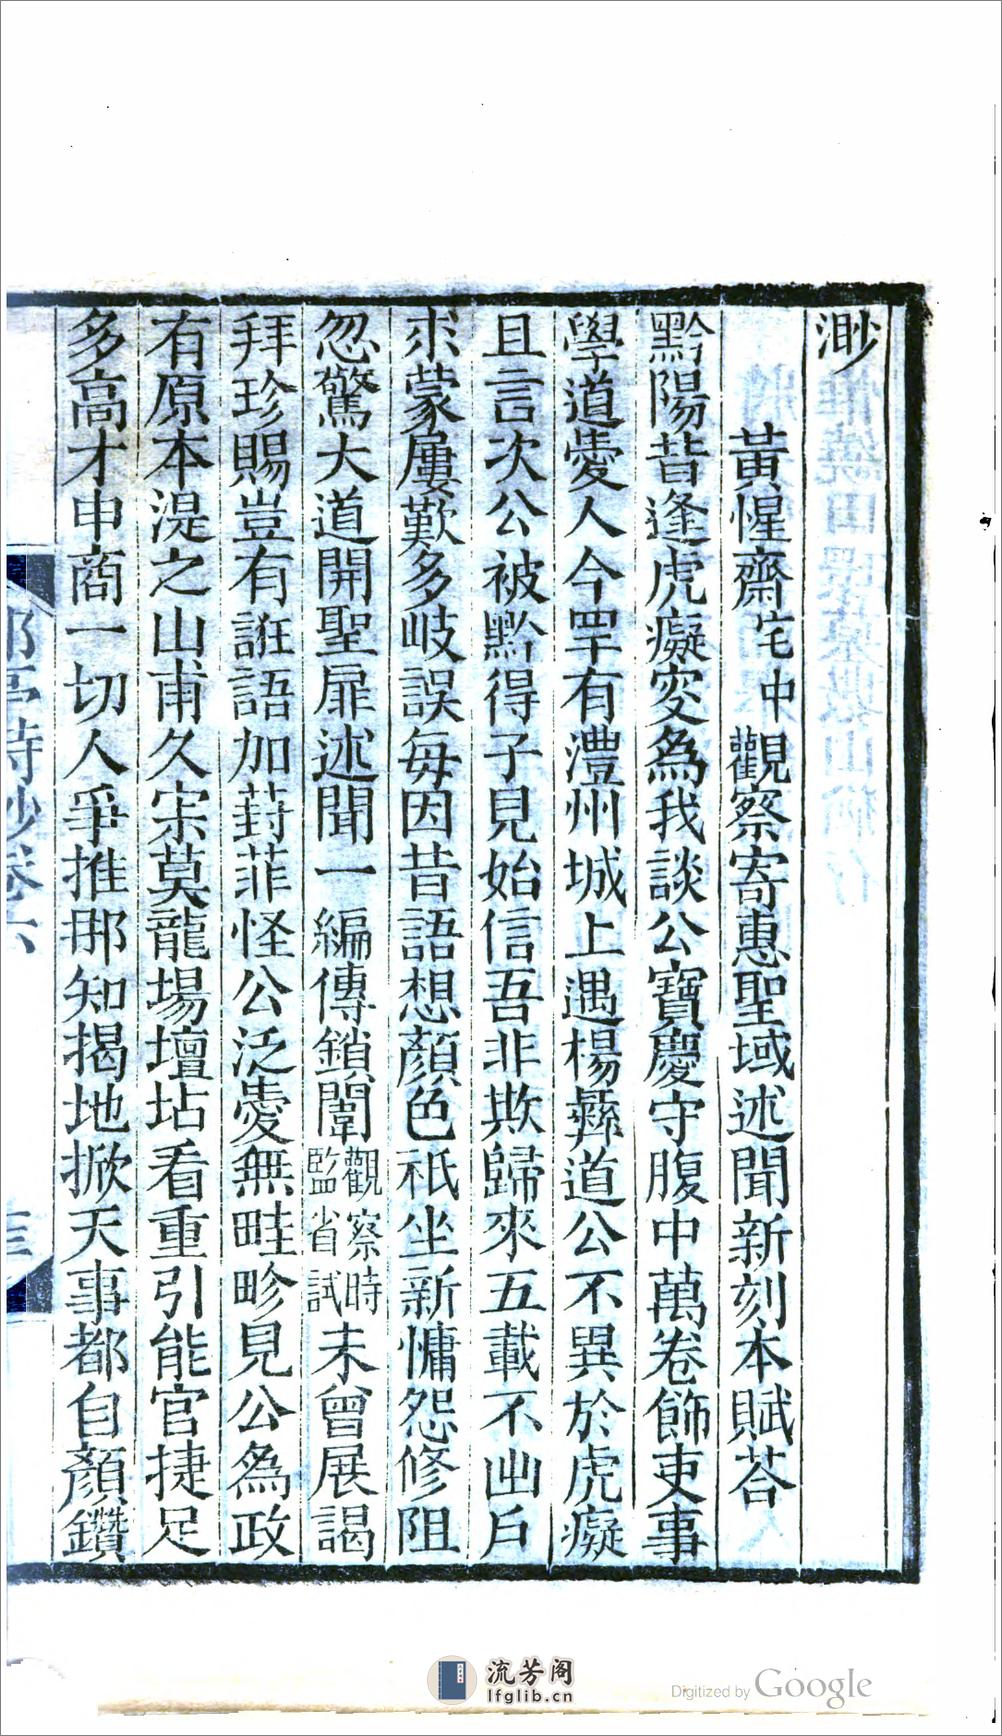 渺
黃惺齋宅中觀察寄惠聖域述聞新刻本賦荅
黔陽昔逢虎癡安爲我談公寶慶守腹中萬卷飾吏事
學道愛人今罕有澧州城上遇楊彝道公不異於虎癡
且言次公被黔得子見始信吾非欺歸來五載不出戶
求蒙屢歎多岐誤每因昔語想顏色祇坐新慵怨修阻
忽驚大道開聖扉述聞一編傳鎖闈觀察時監省試未曾展謁
拜珍賜豈有誑語加葑菲怪公泛愛無畦畛見公爲政
有原本湜之山甫久宗莫龍場壇坫看重引能官捷足
多高才申商一切人爭推那知揭地掀天事都自顏鑽
邵亭詩鈔卷六
流芳阁
lfglib.cn
Digitized by Google